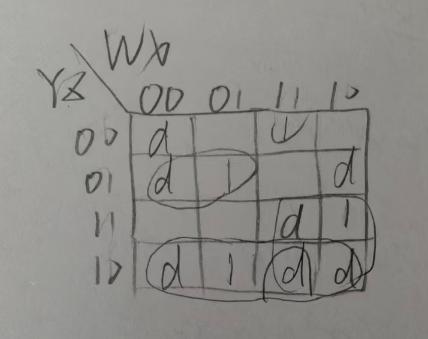 WX
YZ
00 01 11 10
00 d 1
01 d 1 d
11 d 1
10 d 1 d d